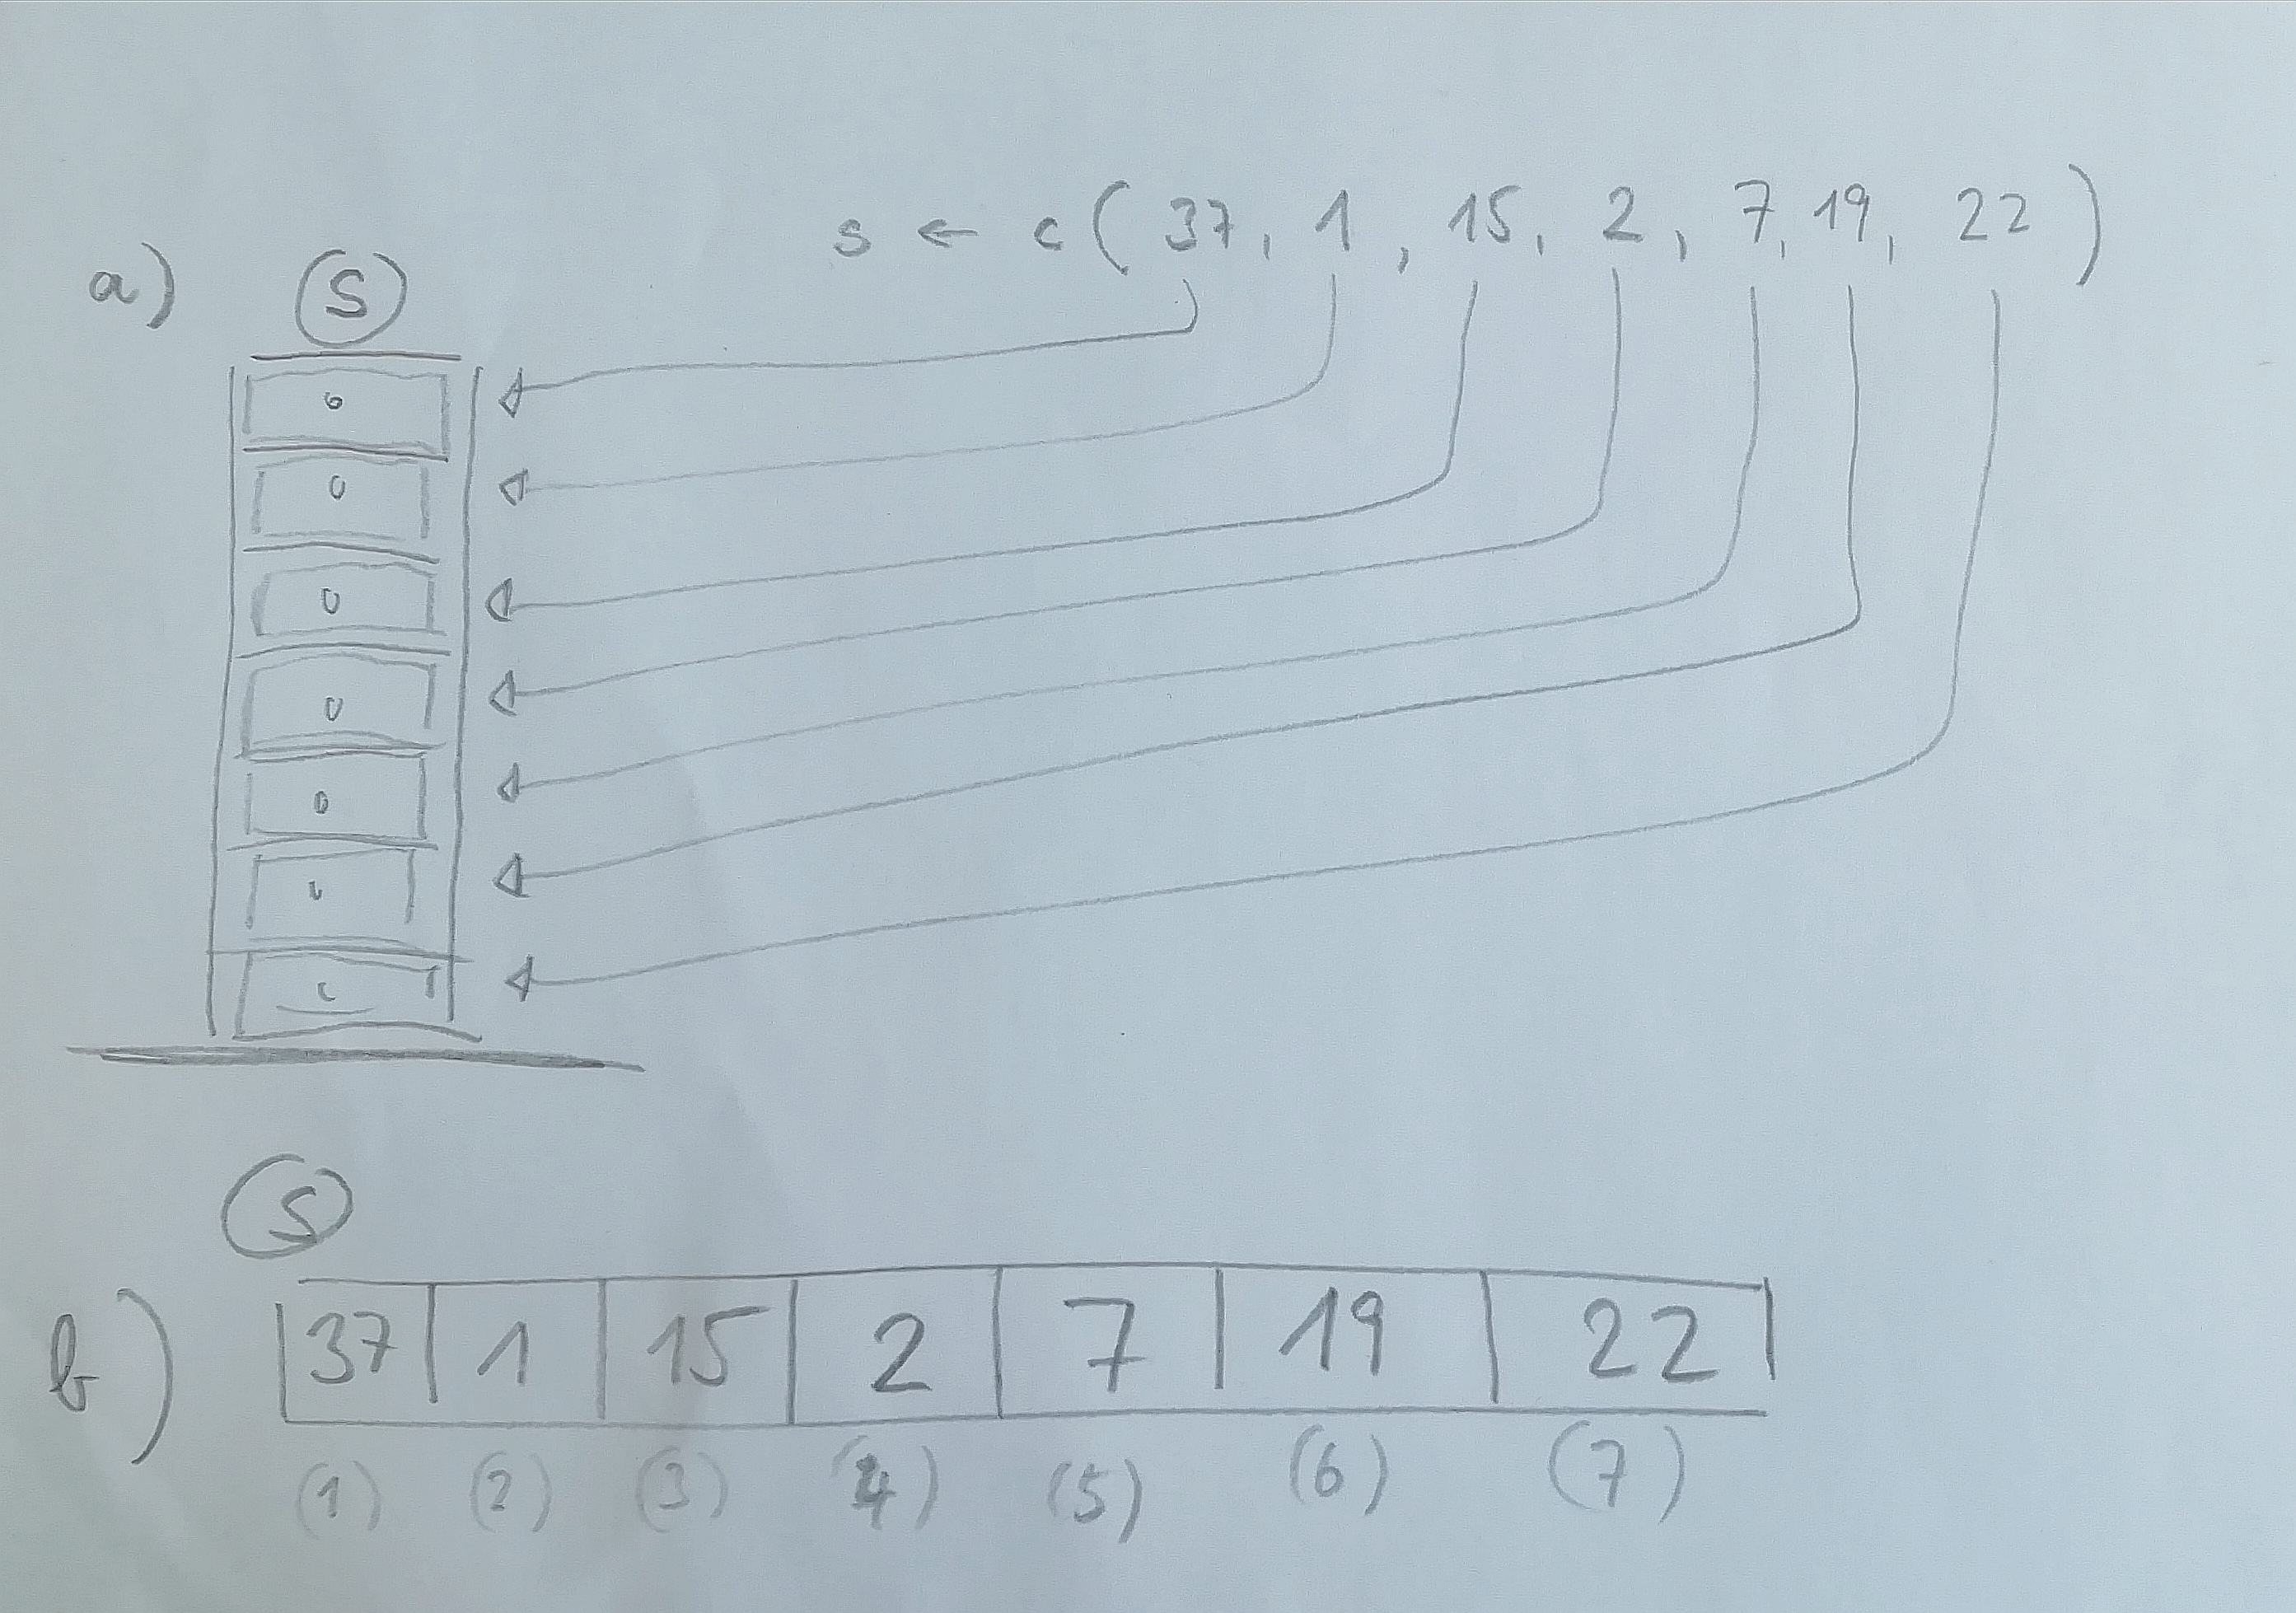 s ← c ( 37, 1, 15, 2, 7, 19, 22 )
a) S
S
b) 37 1 15 2 7 19 22
(1) (2) (3) (4) (5) (6) (7)